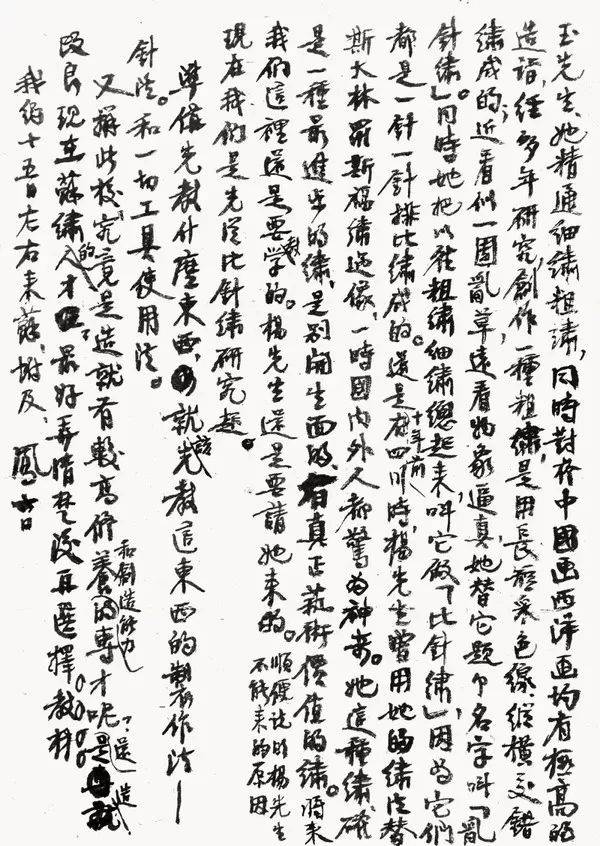 玉先生、她精通細繡粗繡,同時對於中國画西洋画均有極高的
造詣,經多年研究,創作一種粗繡,是用長短彩色線,縱橫交錯
繡成的,近看似一團亂草遠看物象逼真,她替它題个名字叫「亂
針繡」同時她把以往粗繡細繡總起來叫它做「比針繡」,因為它們
都是一針一針排比繡成的。還是在十年前四川時,楊先生曾用她的繡法替
斯大林羅斯福繡造像,一時國內外人都驚為神奇。她這種繡,確
是一種最進步的繡,是別開生面的,有真正藝術價值的繡。將來
我們這裡還是要教學的。楊先生還是要請她來的。順便說明楊先生
不能來的原因
現在我們是先從比針繡研究起。
準值先教什麼東西,就先教這東西的製作法—
針法。和一切工具使用法。
又擬此校究竟是造就有較高修養和創造能力的專才呢?還是造就
改良現在蘇繡的人才?最好弄清楚後再選擇教材
我約十五日左右來蘇,附及,鳳 六日